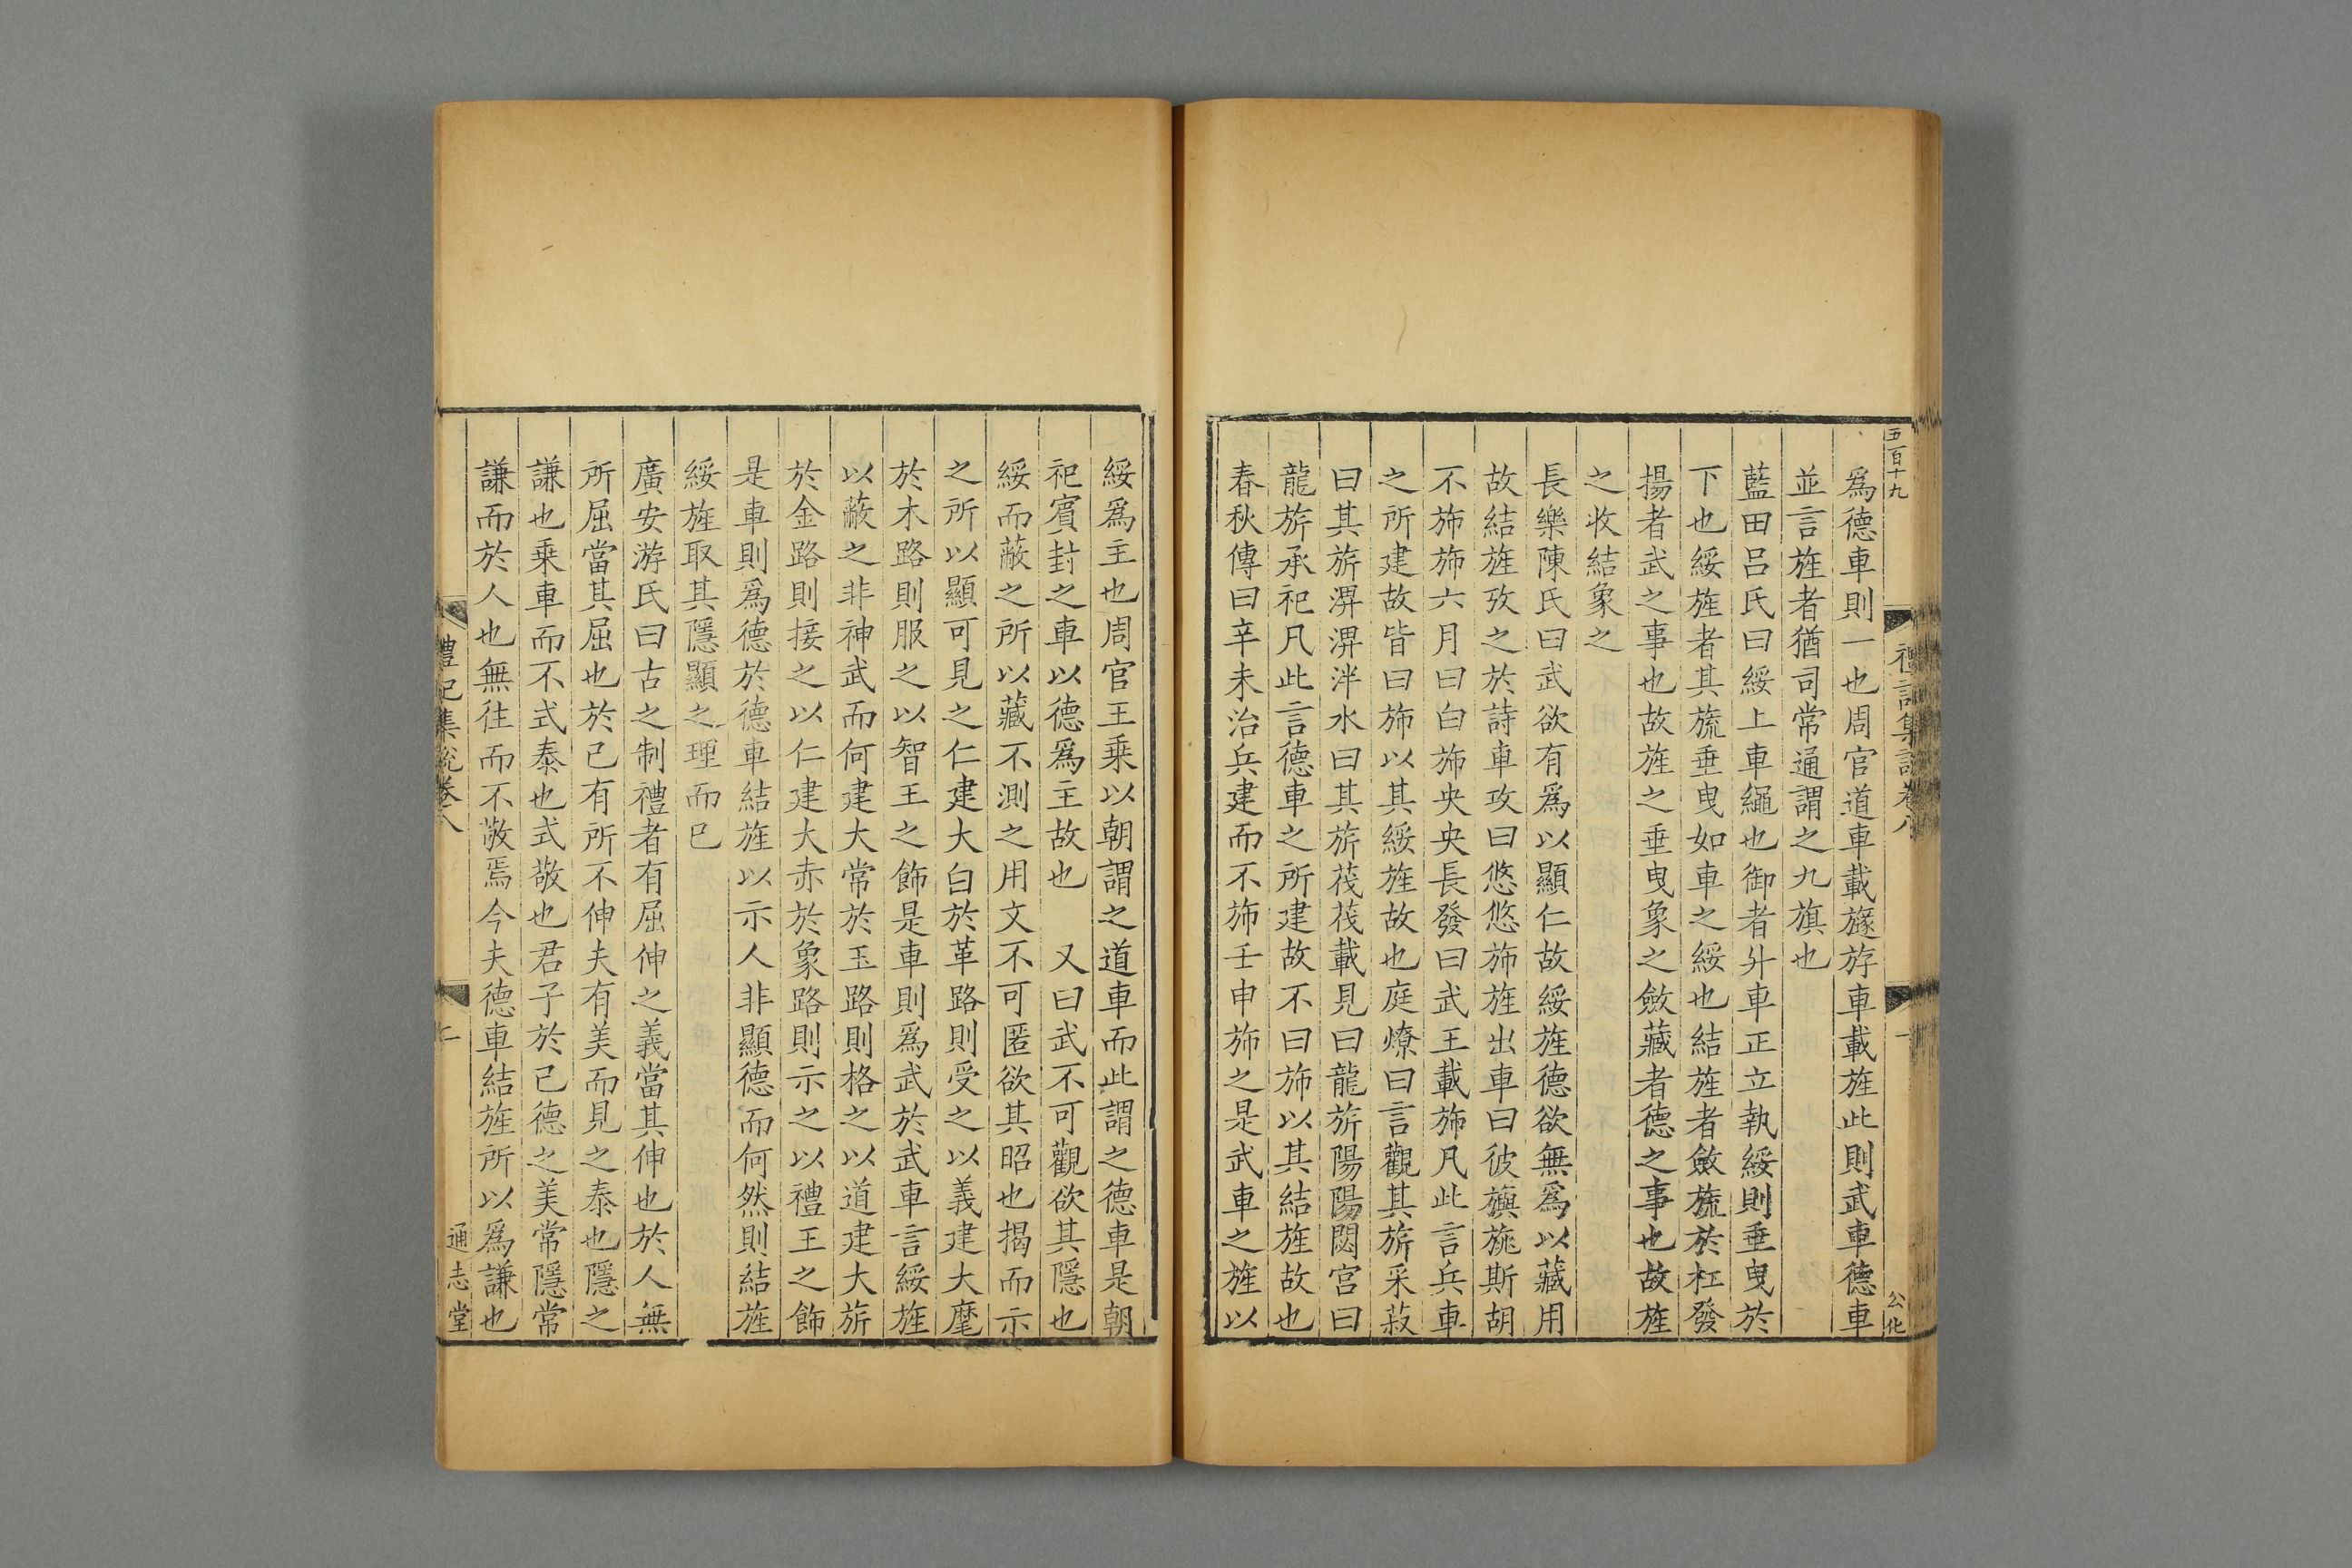 五百十九
禮記集說卷八
一
公化
爲德車則一也周官道車載旞斿車載旌此則武車德車
並言旌者猶司常通謂之九旗也
藍田呂氏曰綏上車繩也御者升車正立執綏則垂曳於
下也綏旌者其旒垂曳如車之綏也結旌者斂旒於杠發
揚者武之事也故旌之垂曳象之斂藏者德之事也故旌
之收結象之
長樂陳氏曰武欲有爲以顯仁故綏旌德欲無爲以藏用
故結旌攷之於詩車攻曰悠悠斾旌出車曰彼旟旐斯胡
不斾斾六月曰白斾央央長發曰武王載斾凡此言兵車
之所建故皆曰斾以其綏旌故也庭燎曰言觀其旂采菽
曰其旂淠淠泮水曰其旂茷茷載見曰龍旂陽陽閟宮曰
龍旂承祀凡此言德車之所建故不曰斾以其結旌故也
春秋傳曰辛未治兵建而不斾壬申斾之是武車之旌以
綏爲主也周官王乘以朝謂之道車而此謂之德車是朝
祀賓封之車以德爲主故也　又曰武不可觀欲其隱也
綏而蔽之所以藏不測之用文不可匿欲其昭也揭而示
之所以顯可見之仁建大白於革路則受之以義建大麾
於木路則服之以智王之飾是車則爲武於武車言綏旌
以蔽之非神武而何建大常於玉路則格之以道建大旂
於金路則接之以仁建大赤於象路則示之以禮王之飾
是車則爲德於德車結旌以示人非顯德而何然則結旌
綏旌取其隱顯之理而已
廣安游氏曰古之制禮者有屈伸之義當其伸也於人無
所屈當其屈也於己有所不伸夫有美而見之泰也隱之
謙也乘車而不式泰也式敬也君子於己德之美常隱常
謙而於人也無往而不敬焉今夫德車結旌所以爲謙也
禮記集說卷八
通志堂